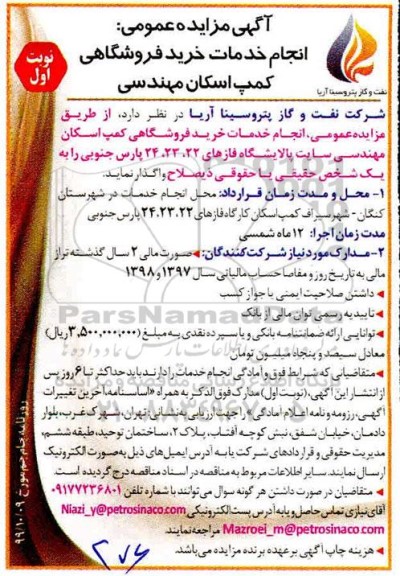 آگهی مزایده عمومی:
انجام خدمات خرید فروشگاهی
کمپ اسکان مهندسی
نوبت اول
نفت و گاز پتروسینا آریا
شرکت نفت و گاز پتروسینا آریا در نظر دارد، از طریق
مزایده عمومی، انجام خدمات خرید فروشگاهی کمپ اسکان
مهندسی سایت پالایشگاه فازهای ۲۲، ۲۳، ۲۴ پارس جنوبی را به
یک شخص حقیقی یا حقوقی ذیصلاح واگذار نماید.
۱- محل و مدت زمان قرارداد: محل انجام خدمات در شهرستان
کنگان - شهر سیراف کمپ اسکان کارگاه فازهای ۲۲، ۲۳، ۲۴ پارس جنوبی
مدت زمان اجرا: ۱۲ ماه شمسی
۲- مدارک مورد نیاز شرکت کنندگان: صورت مالی ۲ سال گذشته تراز
مالی به تاریخ روز و مفاصا حساب مالیاتی سال ۱۳۹۷ و ۱۳۹۸
داشتن صلاحیت ایمنی یا جواز کسب
تاییدیه رسمی توان مالی از بانک
توانایی ارائه ضمانتنامه بانکی و یا سپرده نقدی به مبلغ (۳,۵۰۰,۰۰۰,۰۰۰ ریال)
معادل سیصد و پنجاه میلیون تومان
متقاضیانی که شرایط فوق و آمادگی انجام خدمات را دارند باید حداکثر تا ۶ روز پس
از انتشار این آگهی، (نوبت اول) مدارک فوق الذکر به همراه «اساسنامه، آخرین تغییرات
آگهی، رزومه و نامه اعلام آمادگی» را جهت ارزیابی به نشانی تهران، شهرک غرب، بلوار
دادمان، خیابان شفق، نبش کوچه آفتاب، پلاک ۲، ساختمان توحید، طبقه ششم،
مدیریت حقوقی و قراردادهای شرکت یا به آدرس ایمیل های ذیل به صورت الکترونیک
ارسال نمایند. سایر اطلاعات مربوط به مناقصه در اسناد مناقصه درج گردیده است.
متقاضیان در صورت داشتن هر گونه سوال می توانند با شماره تلفن ۰۹۱۷۷۲۳۶۸۰۱
آقای نیازی تماس حاصل و یا به آدرس پست الکترونیکی Niazi_y@petrosinaco.com
Mazroei_m@petrosinaco.com مراجعه نمایند.
هزینه چاپ آگهی بر عهده برنده مزایده می باشد.
روزنامه جام جم مورخ ۹۹/۱۰/۰۹
ParsNamadData